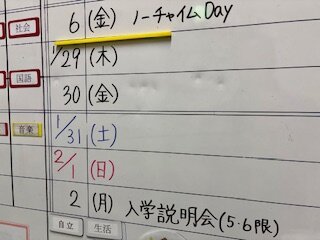 社会 6 (金) ノーチャイムDay
1/29 (木)
国語
30 (金)
音楽 1/31 (土)
2/1 (日)
2 (月) 入学説明会(5.6限)
自立 生活